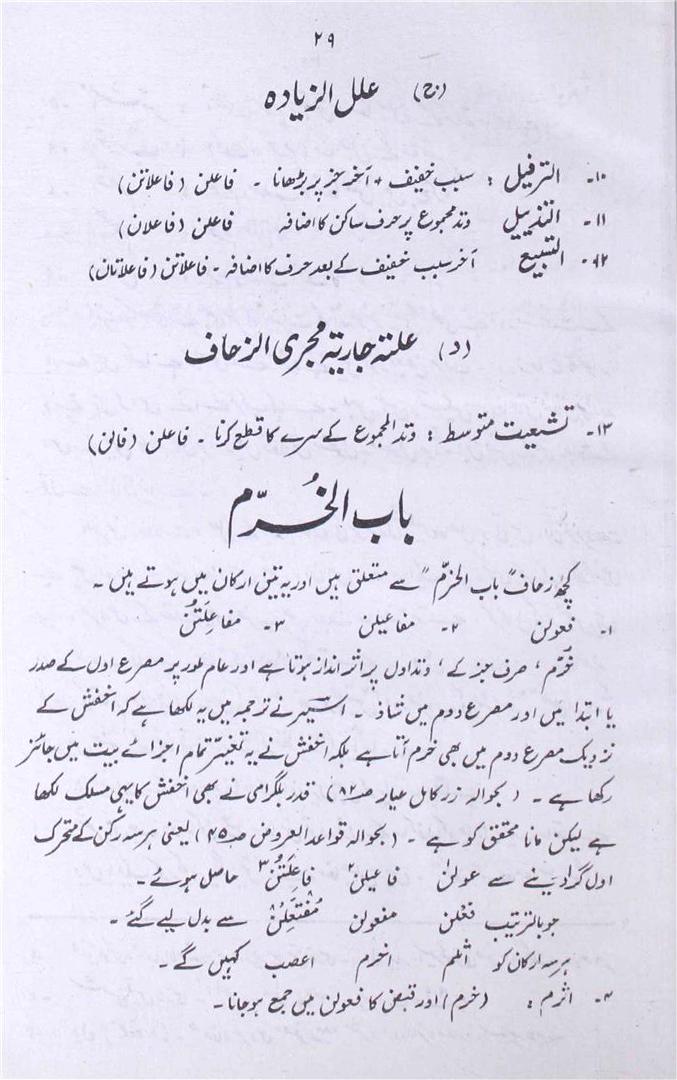 ۲۹
(ج) علل الزیادہ
۱۰۔ الترفیل : سبب خفیف + آخر جز پر بڑھانا ۔ فاعلن (فاعلاتن)
۱۱۔ التذییل وتد مجموع پر حرف ساکن کا اضافہ فاعلن (فاعلان)
۱۲۔ التسبیع آخر سبب خفیف کے بعد حرف کا اضافہ ۔ فاعلاتن (فاعلاتان)
(د) علتہ جاریتہ مجری الزحاف
۱۳۔ تشعیث متوسط : وتد المجموع کے سرے کا قطع کرنا ۔ فاعلن (فالن)
باب الخُرّم
کچھ زحاف ”باب الخرّم“ سے متعلق ہیں اور یہ تین ارکان میں ہوتے ہیں ۔
۱۔ فعولن ۲۔ مفاعیلن ۳۔ مفاعِلَتُن
خرّم، صرف جز کے، وتد اول پر اثر انداز ہوتا ہے اور عام طور پر مصرع اول کے صدر
یا ابتدا میں اور مصرع دوم میں شاذ ۔ اسیر نے ترجمہ میں یہ لکھا ہے کہ اخفش کے
نزدیک مصرع دوم میں بھی خرم آتا ہے بلکہ اخفش نے یہ تغیّر تمام اجزائے بیت میں جائز
رکھا ہے ۔ (بحوالہ زر کامل عیار صہ ۸۲) قدر بلگرامی نے بھی اخفش کا یہی مسلک لکھا
ہے لیکن مانا محقق کو ہے ۔ (بحوالہ قواعد العروض صہ ۴۵) یعنی ہر سہ رکن کے متحرک
اول گرا دینے سے عولن فاعیلن۲ فاعَلَتُن۳ حاصل ہوئے ۔
جو بالترتیب فعلن مفعولن مُفْتَعِلُن سے بدل لیے گئے ۔
ہر سہ ارکان کو اثلم اخرم اعصب کہیں گے ۔
۴۔ اثرم : (خرم) اور قبض کا فعولن میں جمع ہو جانا ۔